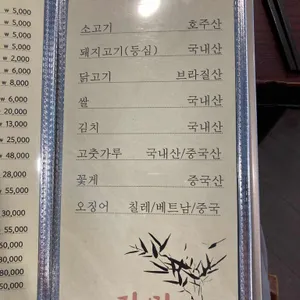 ₩ 5,000
₩ 5,000
₩ 5,000
₩ 5,000
₩ 2,000
₩ 6,000
₩ 8,000
₩ 6,000
₩ 20,000
₩ 13,000
₩ 26,000
₩ 48,000
₩ 28,000
₩ 55,000
30,000
55,000
50,000
50,000
50,000
소고기 호주산
돼지고기(등심) 국내산
닭고기 브라질산
쌀 국내산
김치 국내산
고춧가루 국내산/중국산
꽃게 중국산
오징어 칠레/베트남/중국